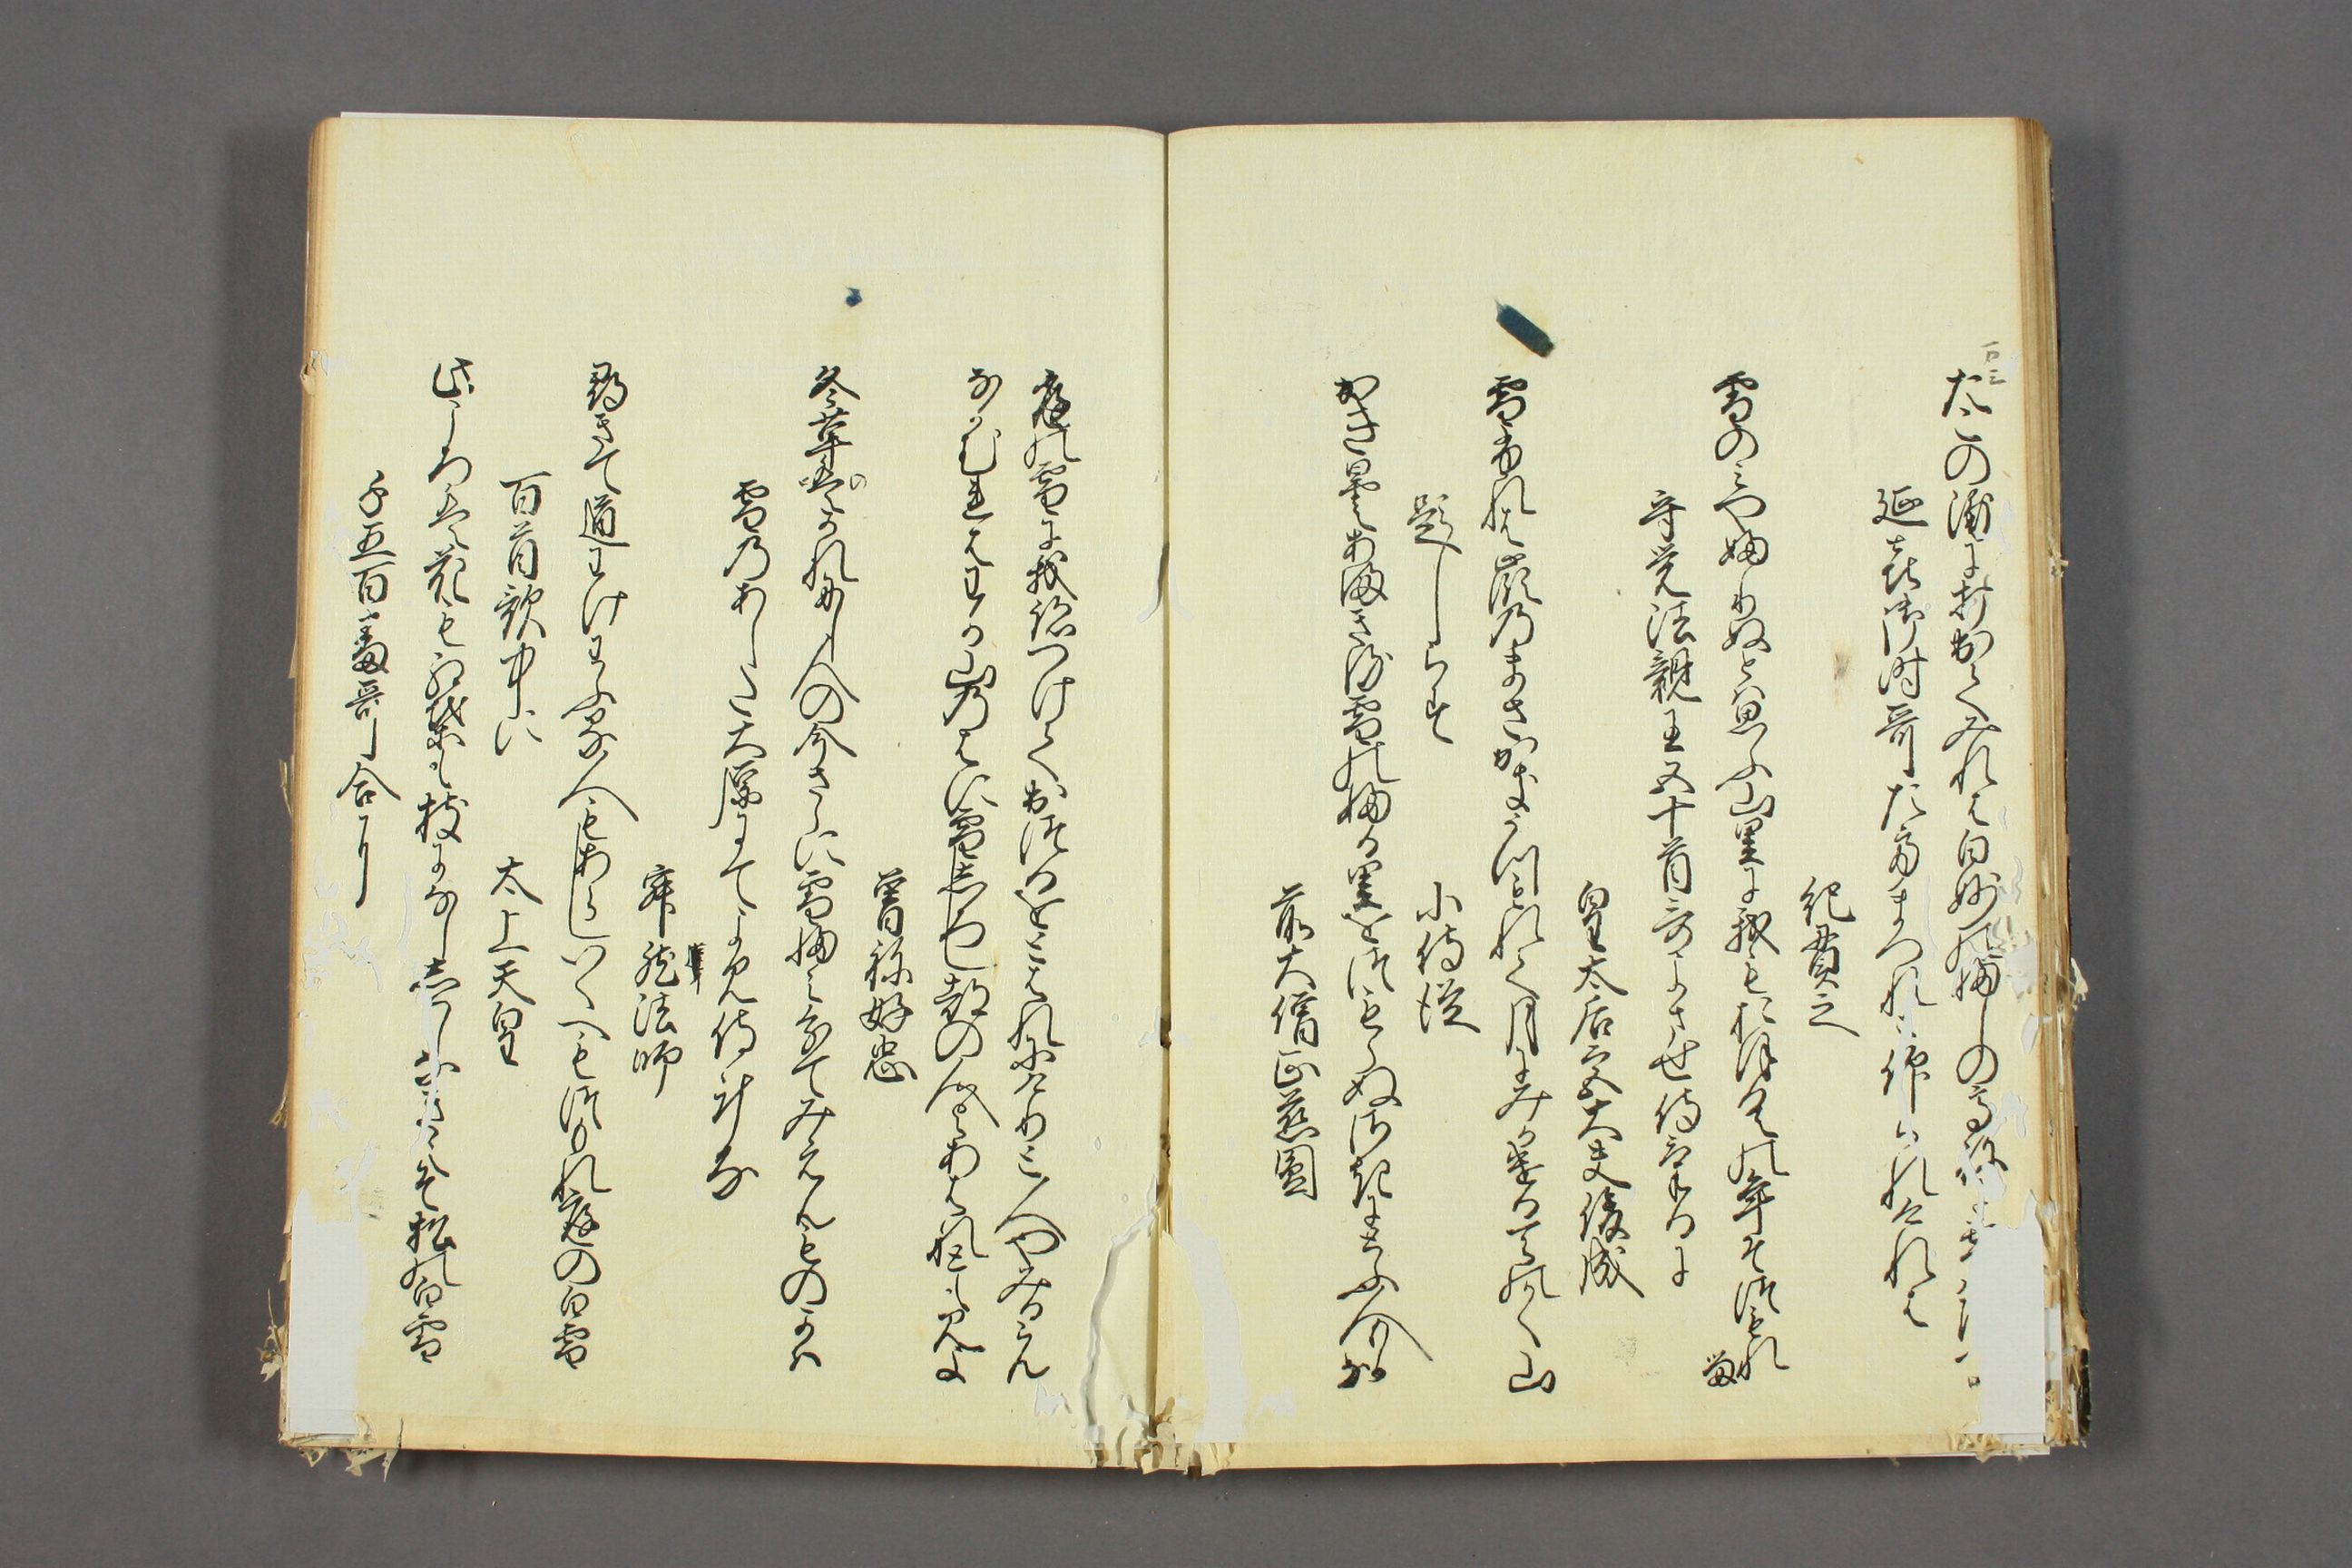 たこの浦に打出てみれは白妙の富士の高ね
延喜御時哥たてまつれと仰られけれは
紀貫之
雪のみやふりぬとは思ふ山里に我もおほくの年そつもれる
守覚法親王五十首哥よませ侍けるに
皇太后宮大夫俊成
雪ふれは嶺のまさかきうつもれて月にみかける天のかく山
題しらす
小侍従
かきくもりあまきる雪のふる里をつもらぬさきにとふ人もかな
前大僧正慈圓
庭の雪に我跡つけて出つるをとはれにけりと人やみるらん
なかむれはわか山のはに雪しろし都の人よあはれとも見よ
曽祢好忠
冬草のかれにし人の今さらに雪ふみ分てみえん物かは
雪のあした大原にてよみ侍ける
寂然法師
尋きて道わけわふる人もあらしいくへもつもれ庭の白雪
百首歌中に
太上天皇
此ころは花も紅葉も枝になししはしなきえそ松の白雪
千五百番哥合に